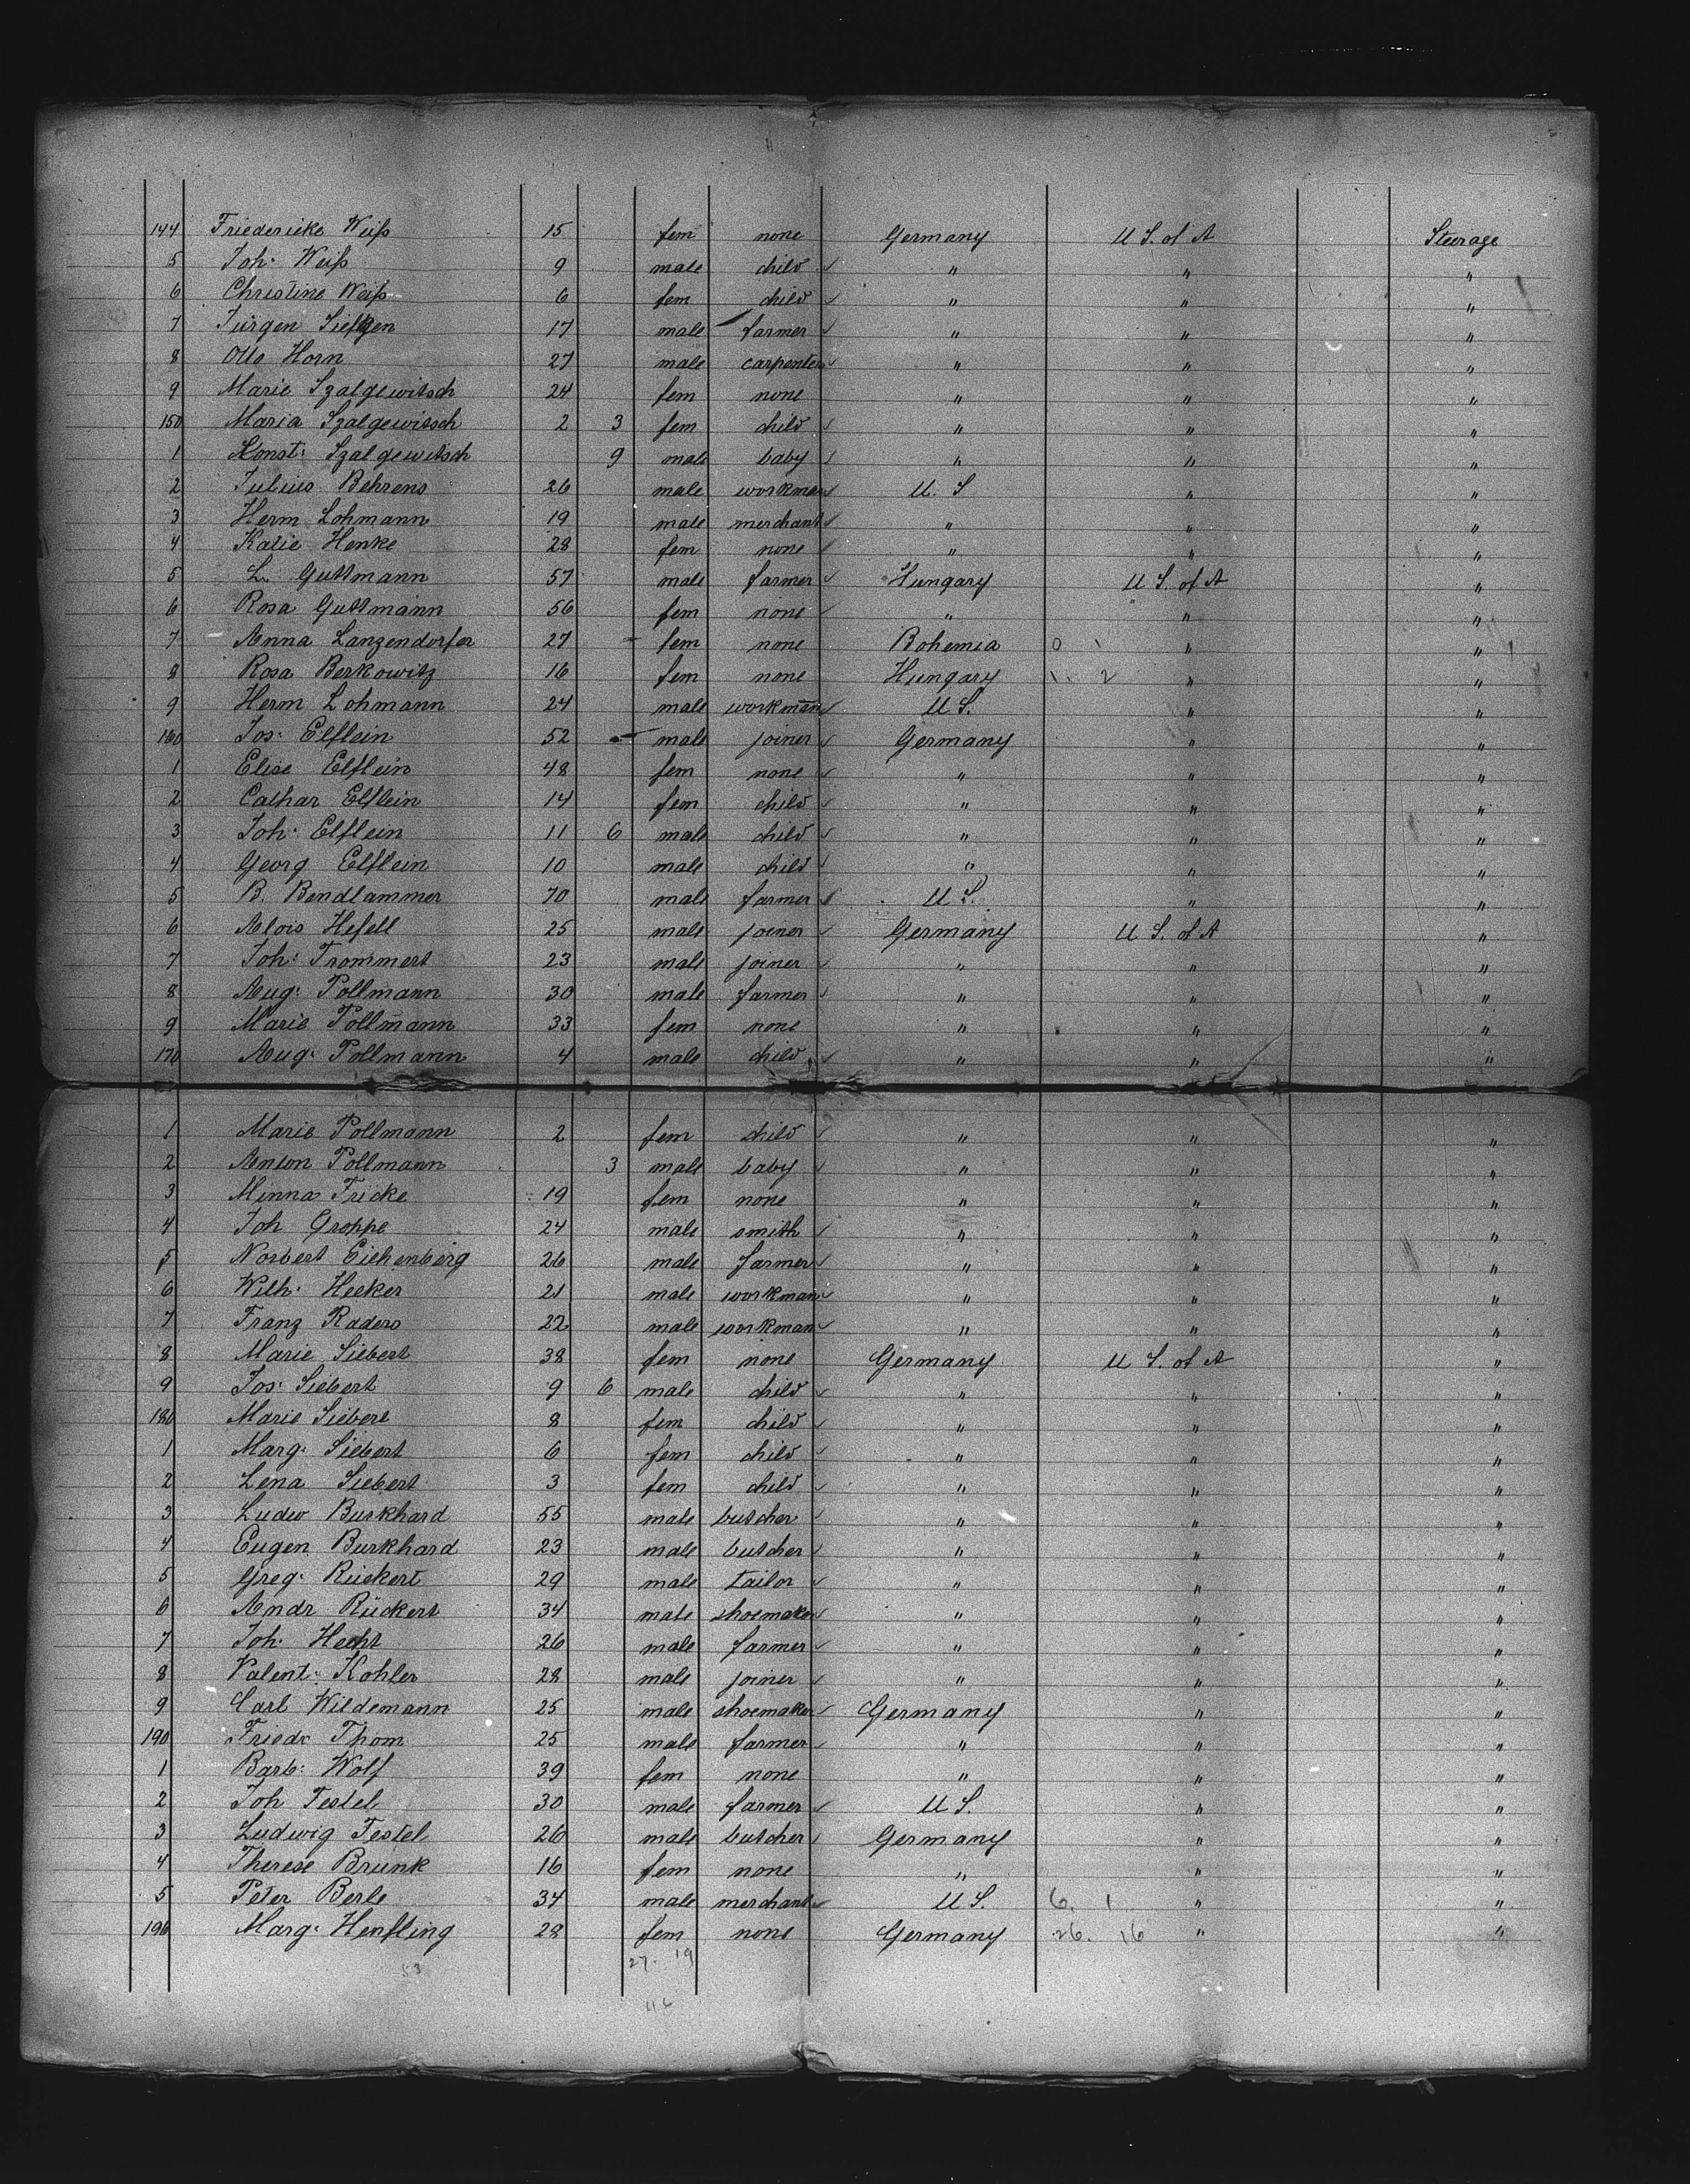 144 Friederieke Weiß 15 fem none Germany U S. of A Steerage
5 Joh: Weiß 9 male child " " "
6 Christine Weiß 6 fem child " " "
7 Jürgen Siefken 17 male farmer " " "
8 Otto Horn 27 male carpenter " " "
9 Marie Szalgewitsch 24 fem none " " "
150 Maria Szalgewitsch 2 3 fem child " " "
1 Konst: Szalgewitsch 9 male baby " " "
2 Julius Behrens 26 male workman U. S " "
3 Herm Lohmann 19 male merchant " " "
4 Katie Henke 28 fem none " " "
5 L. Guttmann 57 male farmer Hungary U S. of A "
6 Rosa Guttmann 56 fem none " " "
7 Anna Lanzendorfer 27 fem none Bohemia 0 1 " "
8 Rosa Berkowitz 16 fem none Hungary 1. 2 " "
9 Herm Lohmann 24 male workmann U S. " "
160 Jos: Elflein 52 male joiner Germany " "
1 Elise Elflein 48 fem none " " "
2 Cathar Elflein 14 fem child " " "
3 Joh: Elflein 11 6 male child " " "
4 Georg Elflein 10 male child " " "
5 B. Bendlammer 70 male farmer U S. " "
6 Alois Hefell 25 male joiner Germany U S. of A "
7 Joh: Trommert 23 male joiner " " "
8 Aug: Pollmann 30 male farmer " " "
9 Marie Pollmann 33 fem none " " "
170 Aug: Pollmann 4 male child " " "
1 Marie Pollmann 2 fem child " " "
2 Anton Pollmann 3 male baby " " "
3 Minna Fricke 19 fem none " " "
4 Joh Groppe 24 male smith " " "
5 Norbert Eichenberg 26 male farmer " " "
6 Wilh: Hecker 21 male workman " " "
7 Franz Raders 22 male workman " " "
8 Marie Siebert 38 fem none Germany U S. of A "
9 Jos: Siebert 9 6 male child " " "
180 Marie Siebert 8 fem child " " "
1 Marg: Siebert 6 fem child " " "
2 Lena Siebert 3 fem child " " "
3 Ludw Burkhard 55 male butcher " " "
4 Eugen Burkhard 23 male butcher " " "
5 Greg: Rückert 29 male tailor " " "
6 Andr Rückert 34 male shoemaker " " "
7 Joh: Hecht 26 male farmer " " "
8 Valent: Kohler 28 male joiner " " "
9 Carl Wildemann 25 male shoemaker Germany " "
190 Friedr Thom 25 male farmer " " "
1 Barb: Wolf 39 fem none " " "
2 Joh Testel 30 male farmer U S. " "
3 Ludwig Testel 26 male butcher Germany " "
4 Therese Brunk 16 fem none " " "
5 Peter Berle 34 male merchant U S. 6. 1 " "
196 Marg: Henfling 28 fem none Germany 26. 16 " "
27. 19
53